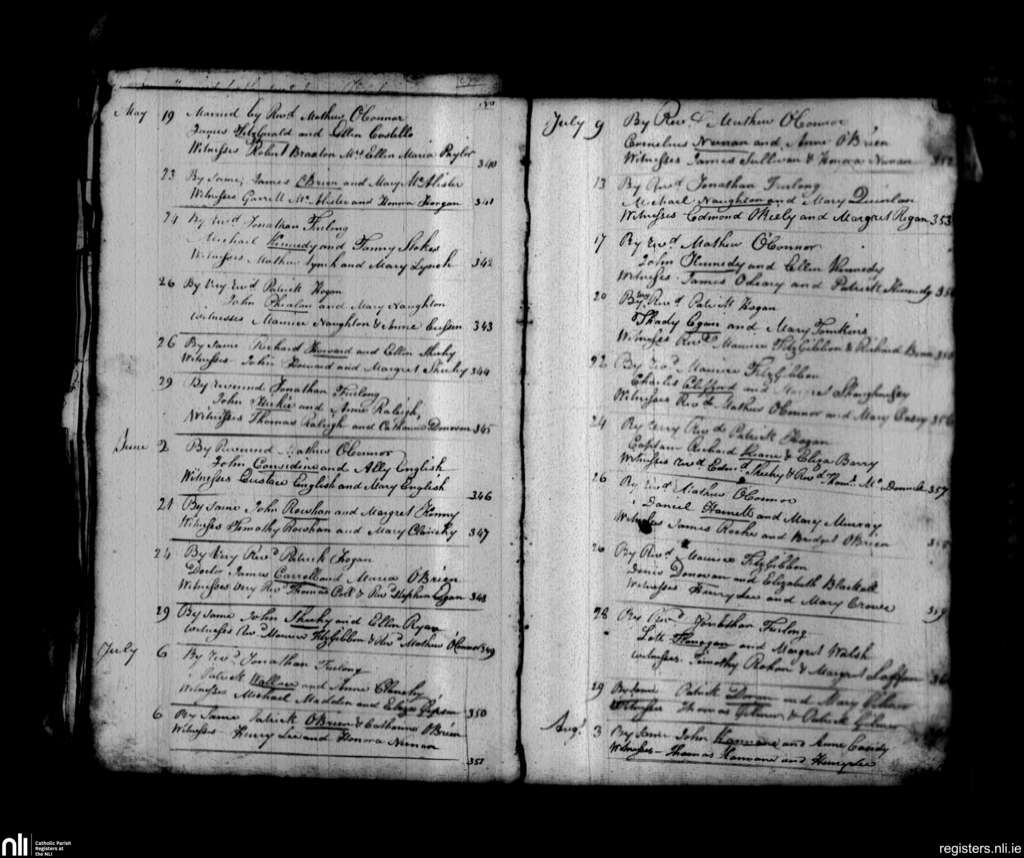 May 19 Married by Revd Mathew O'Connor
James FitzGerald and Ellen Costello
Witnesses Robert Braxton Mrs Ellen Maria Peylor 340
23 By Same, James O'Brien and Mary McAlister
Witnesses Garrett McAlister and Honora Horgan 341
24 By Revd Jonathan Furlong
Michael Kennedy and Fanny Stokes
Witnesses Mathew Lynch and Mary Lynch 342
26 By Very Revd Patrick Hogan
John Phealan and Mary Naughton
Witnesses Maurice Naughton & Anne 343
26 By Same Richard Howard and Ellen Sheehy
Witnesses John Howard and Margret Sheehy 344
29 By Reverend Jonathan Furlong
John Hickie and Anne Raleigh,
Witnesses Thomas Raleigh and Catharine Donovan 345
June 2 By Reverend Mathew O'Connor
John Considine and Ally English
Witnesses Eustace English and Mary English 346
21 By Same John Rowhan and Margret Kenny
Witness Timothy Rowhan and Mary Clanchy 347
24 By Very Revd Patrick Hogan
Doctor James Carroll and Maria O'Brien
Witnesses Very Revd Thomas & Revd Stephen Egan 348
29 By Same John Sheehy and Ellen Ryan
Witnesses Revd Maurice FitzGibbon & Revd Mathew O'Connor 349
July 6 By Revd Jonathan Furlong
Patrick Wallace and Anne Clanchy
Witnesses Michael Madden and Eliza 350
6 By Same Patrick O'Brien & Catharine O'Brien
Witnesses Henry Lee and Honora Nunan
351
July 9 By Revd Mathew O'Connor
Cornelius Nunan and Anne O'Brien
Witnesses James Sullivan & Honora Nunan 352
13 By Revd Jonathan Furlong
Michael Naughton and Mary Quinlan
Witnesses Edmond O'Kelly and Margret Regan 353
17 By Revd Mathew O'Connor
John Kennedy and Ellen Kennedy
Witnesses James O'Leary and Patrick Kennedy 354
20 By Very Revd Patrick Hogan
Thady Egan and Mary Tomkins
Witnesses Revd Maurice FitzGibbon & Richard 355
22 By Revd Maurice FitzGibbon
Charles Clifford and Margret Shaughnessy
Witnesses Revd Mathew O'Connor and Mary Casey 356
24 By Very Revd Patrick Hogan
Captain Richard Keane & Eliza Barry
Witnesses Revd Edmd Sheehy & Revd Thos McDonnell 357
26 By Revd Mathew O'Connor
Daniel Hannett and Mary Murray
Witnesses James Roche and Bridget O'Brien 358
26 By Revd Maurice FitzGibbon
Denis Donovan and Elizabeth Blackall
Witnesses Henry Lee and Mary Crowe 359
28 By Revd Jonathan Furlong
Flanagan and Margret Walsh
Witnesses Timothy Rohan & Margret Laffan 360
29 By Same Patrick and Mary
Witnesses Thomas & Patrick
Augt 3 By Same John Hanrane and Anne Candy
Witnesses Thomas Hanrane and Henry Lee
nli Catholic Parish
Registers at
the NLI
registers.nli.ie